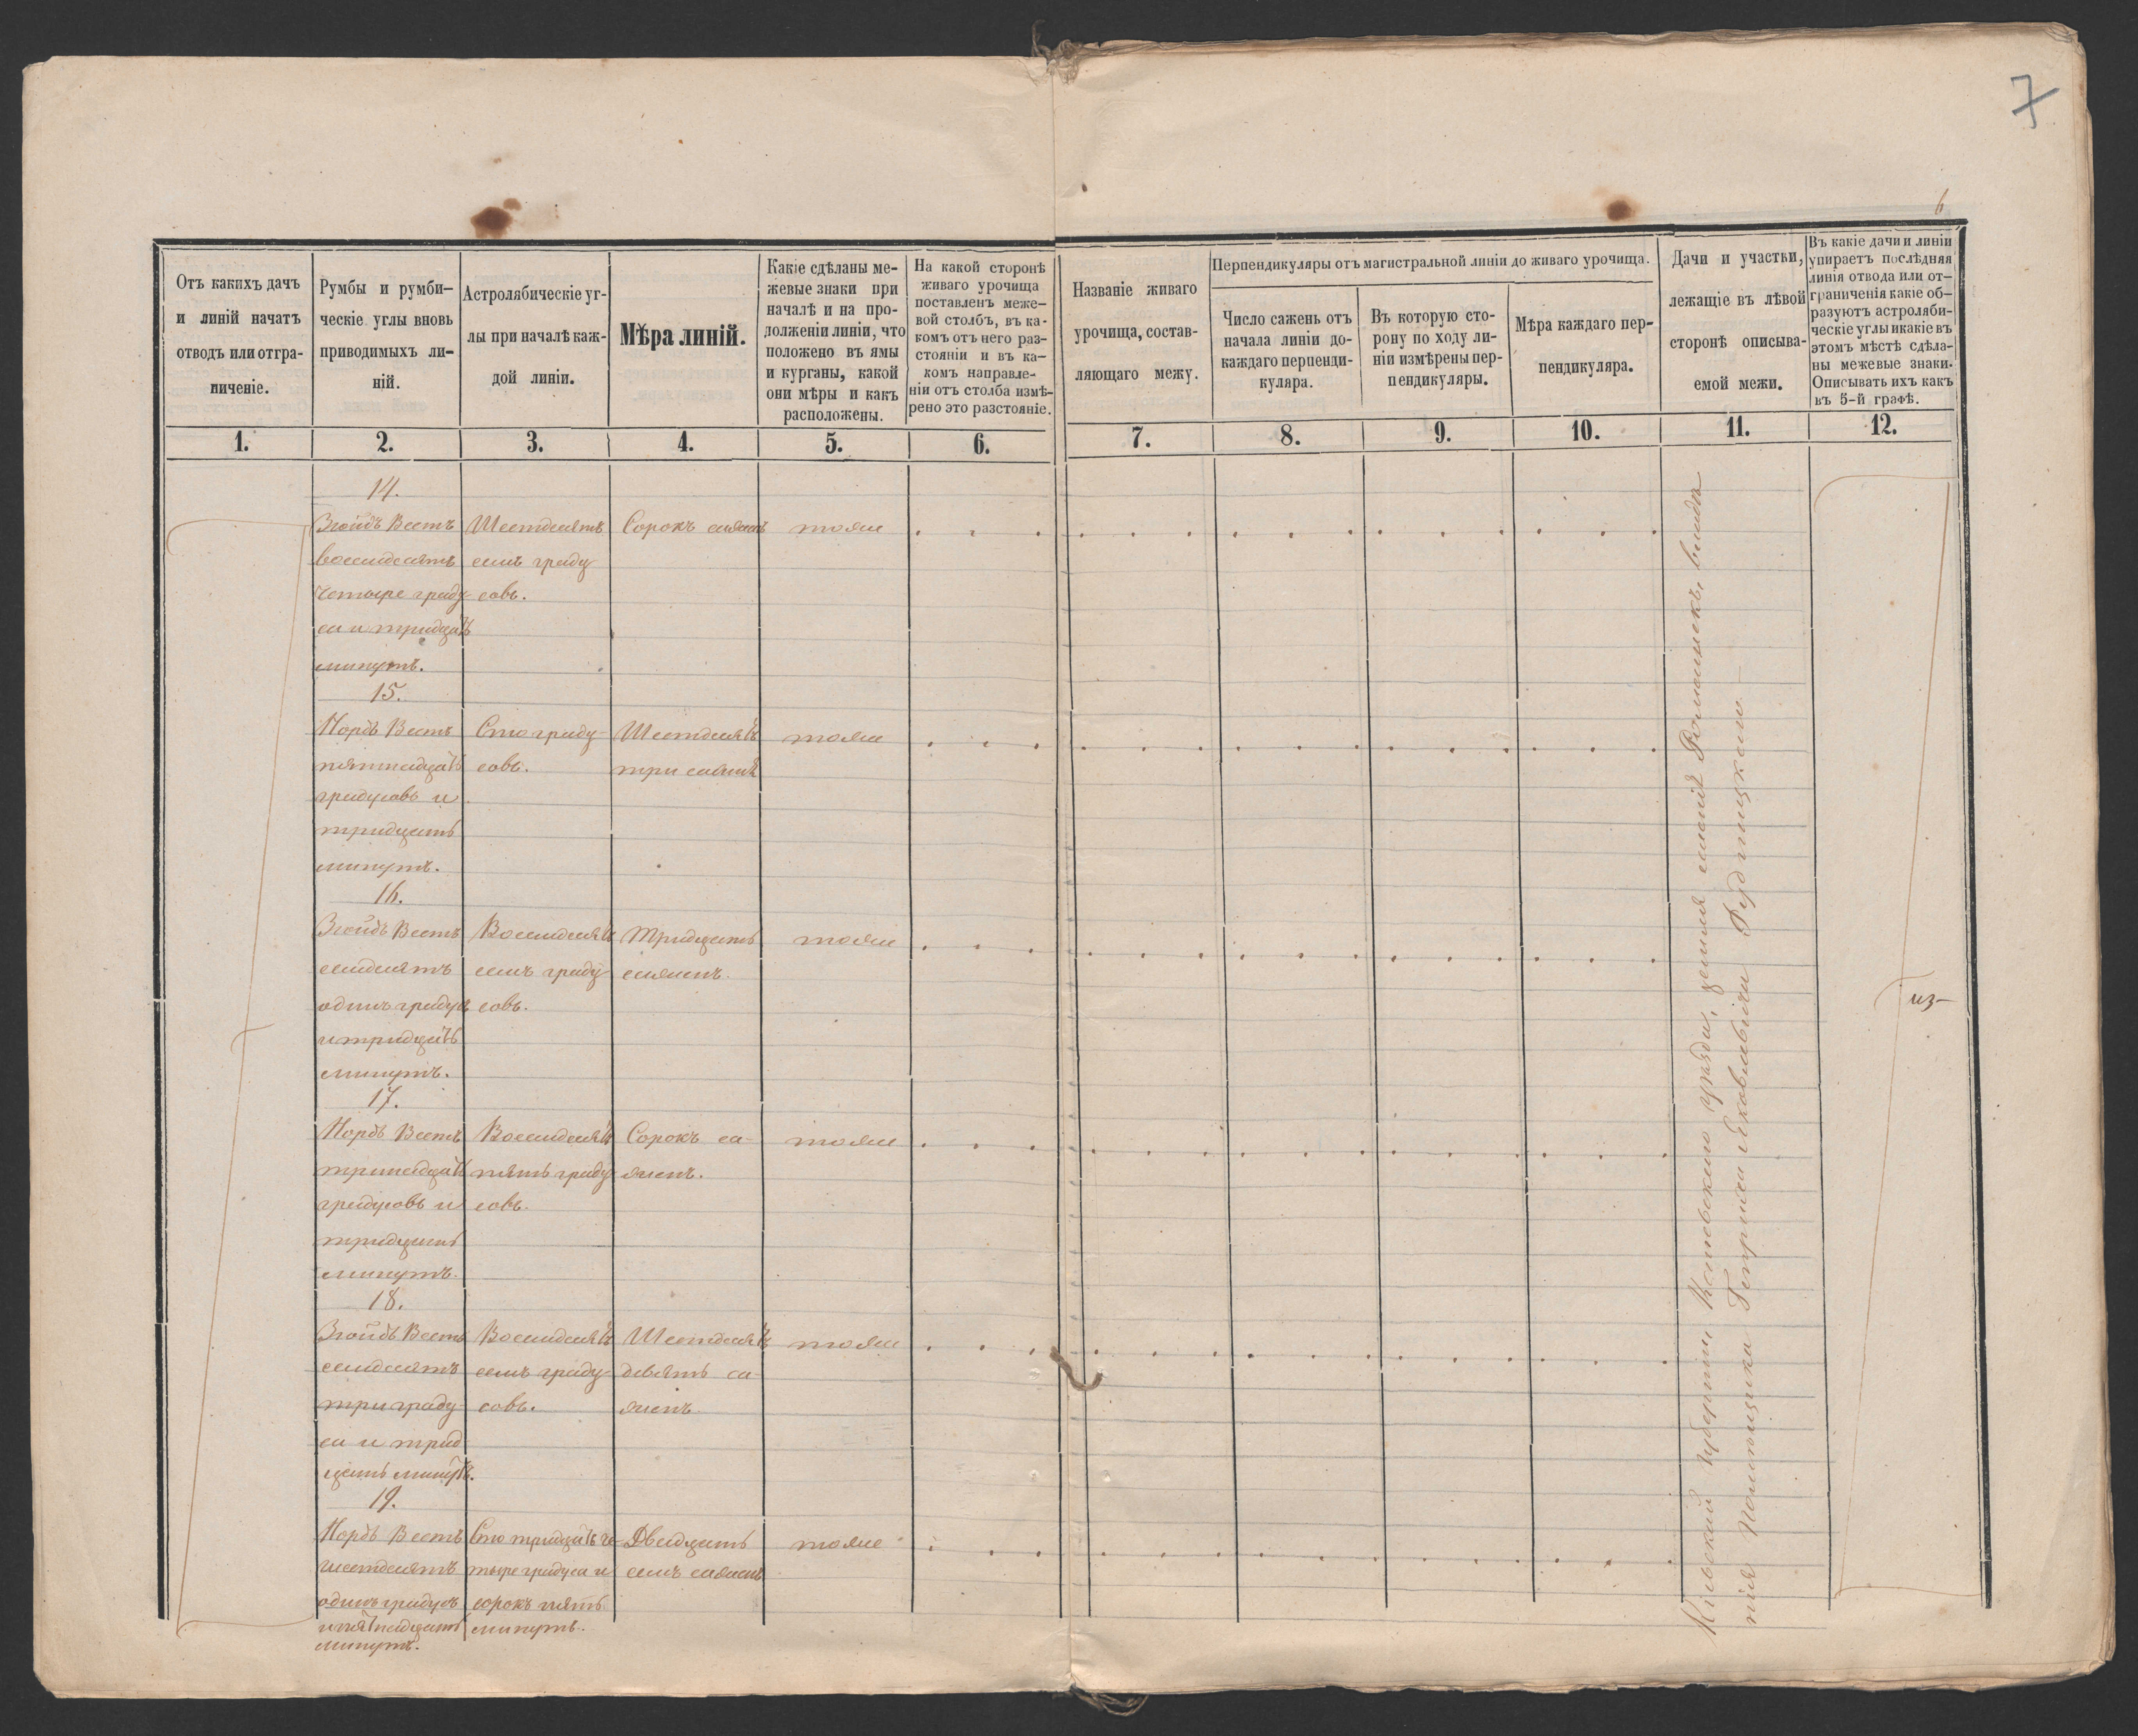 7
6
Отъ какихъ дачъ
и линій начатъ
отводъ или отгра-
ниченіе.
Румбы и румби-
ческіе углы вновь
приводимыхъ ли-
ній.
Астролябическіе уг-
лы при началѣ каж-
дой линіи.
Мѣра линій.
Какіе сдѣланы ме-
жевые знаки при
началѣ и на про-
долженіи линіи, что
положено въ ямы
и курганы, какой
они мѣры и какъ
расположены.
На какой сторонѣ
живаго урочища
поставленъ меже-
вой столбъ, въ ка-
комъ отъ него раз-
стояніи и въ ка-
комъ направле-
ніи отъ столба измѣ-
рено это разстояніе.
Названіе живаго
урочища, состав-
ляющаго межу.
Перпендикуляры отъ магистральной линіи до живаго урочища.
Число сажень отъ
начала линіи до
каждаго перпенди-
куляра.
Въ которую сто-
рону по ходу ли-
ніи измѣрены пер-
пендикуляры.
Мѣра каждаго пер-
пендикуляра.
Дачи и участки,
лежащіе въ лѣвой
сторонѣ описыва-
емой межи.
Въ какіе дачи и линіи
упираетъ послѣдняя
линія отвода или от-
граниченія какіе об-
разуютъ астроляби-
ческіе углы и какіе въ
этомъ мѣстѣ сдѣла-
ны межевые знаки.
Описывать ихъ какъ
въ 5-й графѣ.
1. 2. 3. 4. 5. 6. 7. 8. 9. 10. 11. 12.
14.
Зюйдъ Вестъ
восемдесятъ
четыре граду
са и тридцать
минутъ.
Шестдесятъ
семь граду
совъ.
Сорокъ сажень
тоже
15.
Нордъ Вестъ
пятнадцать
градусовъ и
тридцать
минутъ.
Сто граду-
совъ.
Шестдесятъ
три сажня
тоже
16.
Зюйдъ Вестъ
семдесятъ
одинъ градусъ
и тридцать
минутъ.
Восемдесятъ
семь граду-
совъ.
Тридцать
сажень.
тоже
17.
Нордъ Вестъ
тринадцать
градусовъ и
тридцать
минутъ.
Восемдесятъ
пять граду-
совъ.
Сорокъ са-
жень.
тоже
18.
Зюйдъ Вестъ
семдесятъ
три граду-
са и трид
цать минутъ.
Восемдесятъ
семь граду-
совъ.
Шестдесятъ
девять са-
жень.
тоже
19.
Нордъ Вестъ
шестдесятъ
одинъ градусъ
и пятнадцать
минутъ.
Сто тридцать че-
тыре градуса и
сорокъ пять
минутъ.
Двадцать
семь сажень
тоже
Кіевской губерніи Каневскаго уѣзда, земля имѣнія Ромашекъ, владѣ
нія Помѣщика Генриха Яковлевича Рудницкаго
из-